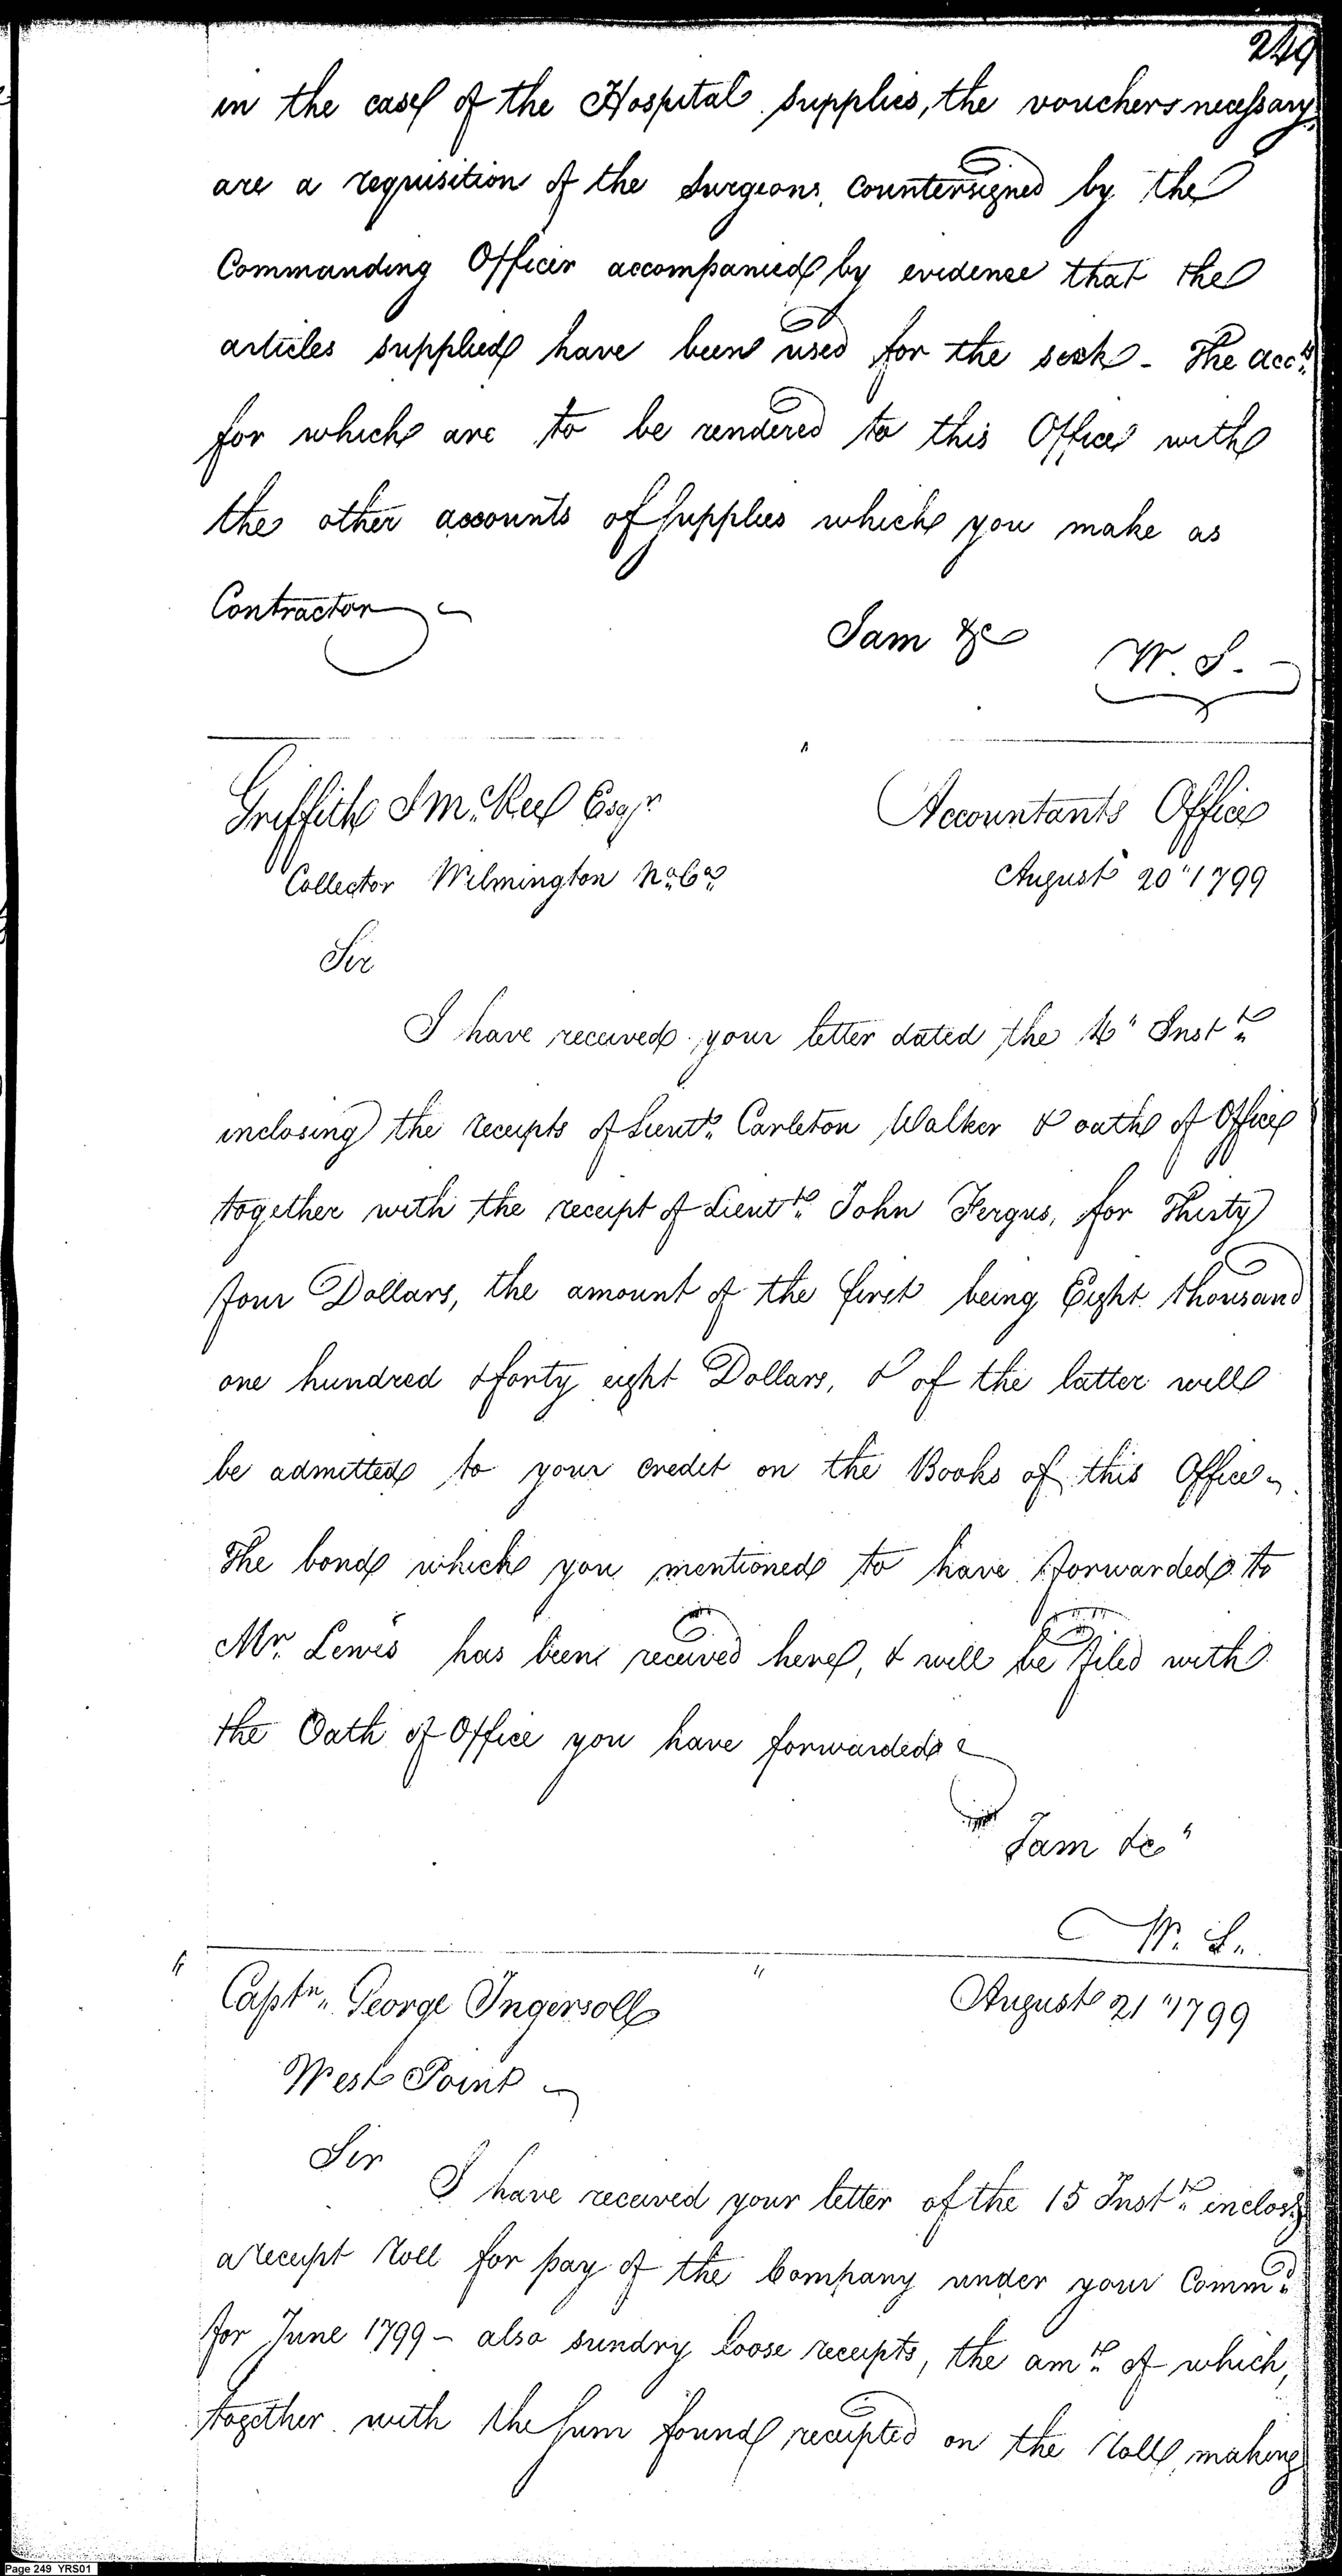 249
in the case of the Hospital supplies, the vouchers necessary
are a requisition of the Surgeons, countersigned by the
Commanding Officer accompanied by evidence that the
articles supplied have been used for the sick - The acc.ts
for which are to be rendered to this Office with
the other accounts of supplies which you make as
Contractor
I am &c
W. S.
Griffith J McRee Esqr
Accountants Office
Collector Wilmington No. Ca.
August 20" 1799
Sir
I have received your letter dated the Inst.t
inclosing the receipts of Lieut.t Carleton Walker & oath of Office
together with the receipt of Lieut.t John Fergus, for Thirty
four Dollars, the amount of the first being Eight thousand
one hundred & forty eight Dollars, & of the latter will
be admitted to your credit on the Books of this Office
The bond which you mentioned to have forwarded to
Mr. Lewis has been received here, & will be filed with
the Oath of Office you have forwarded
I am &c "
W. S.
Capt.n George Ingersoll
August 21 " 1799
West Point
Sir
I have received your letter of the 15 Inst.t inclosg
a receipt Roll for pay of the Company under your Comm.d
for June 1799 - also sundry loose receipts, the am.t of which,
together with the sum found receipted on the Roll, making
Page 249 YRS01